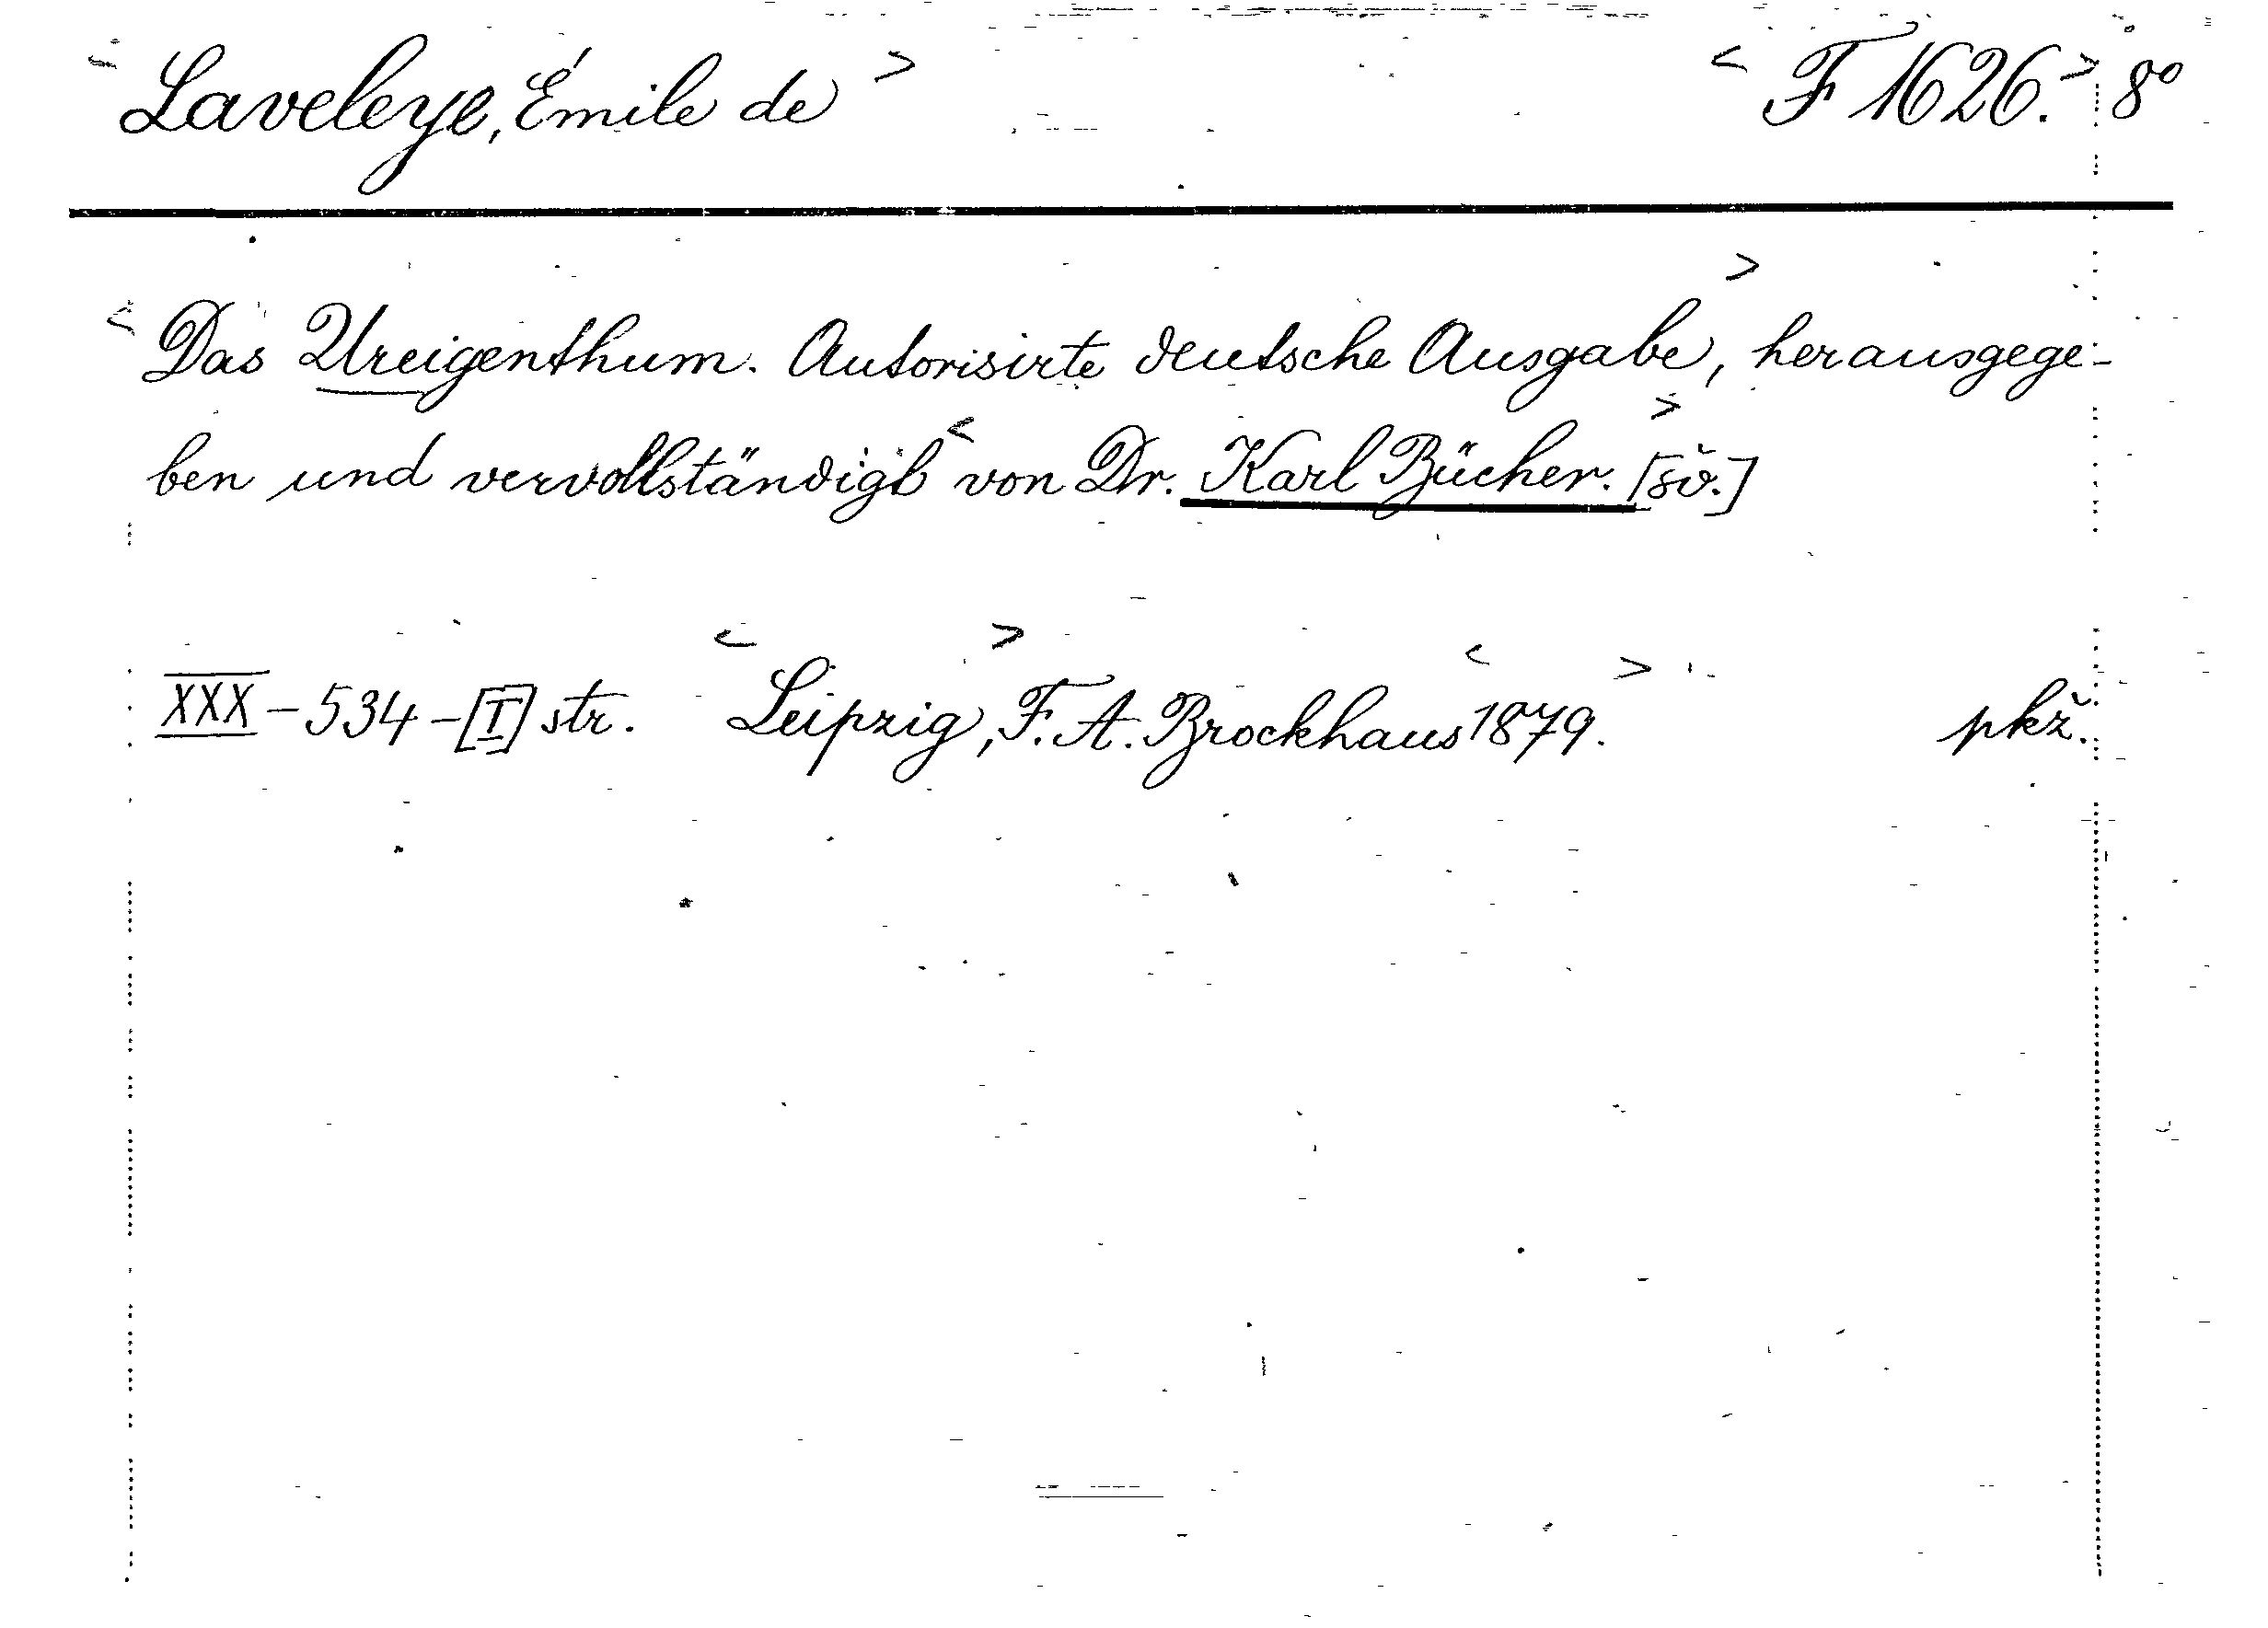 < Laveleye, Émile de > < F 1626. > 8°
< Das Ureigenthum. Autorisirte deutsche Ausgabe >, herausgege-
ben und vervollständigt < von Dr. Karl Bücher. > [šv.]
XXX - 534 - [I] str. < Leipzig >, F. A. Brockhaus < 1879. > pkž.